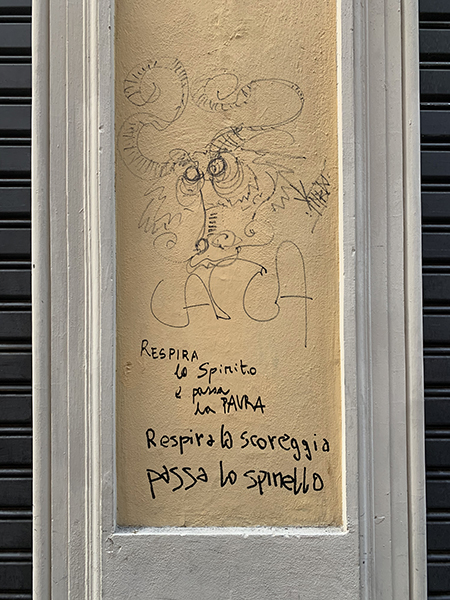 CACCA
RESPIRA
lo Spirito
e passa
la PAURA
Respira la scoreggia
passa lo spinello